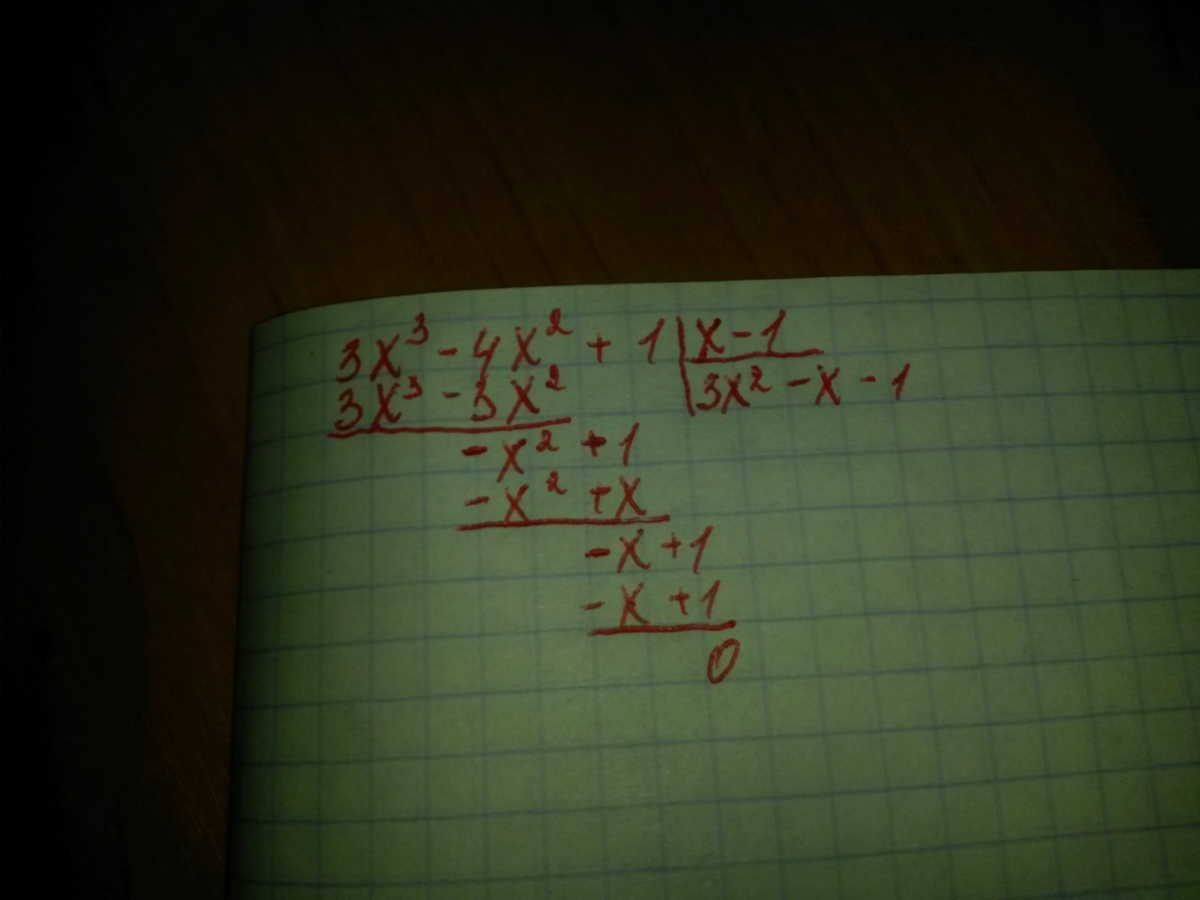 3x³ - 4x² + 1 | x - 1
3x³ - 3x² | 3x² - x - 1
- x² + 1
- x² + x
- x + 1
- x + 1
0